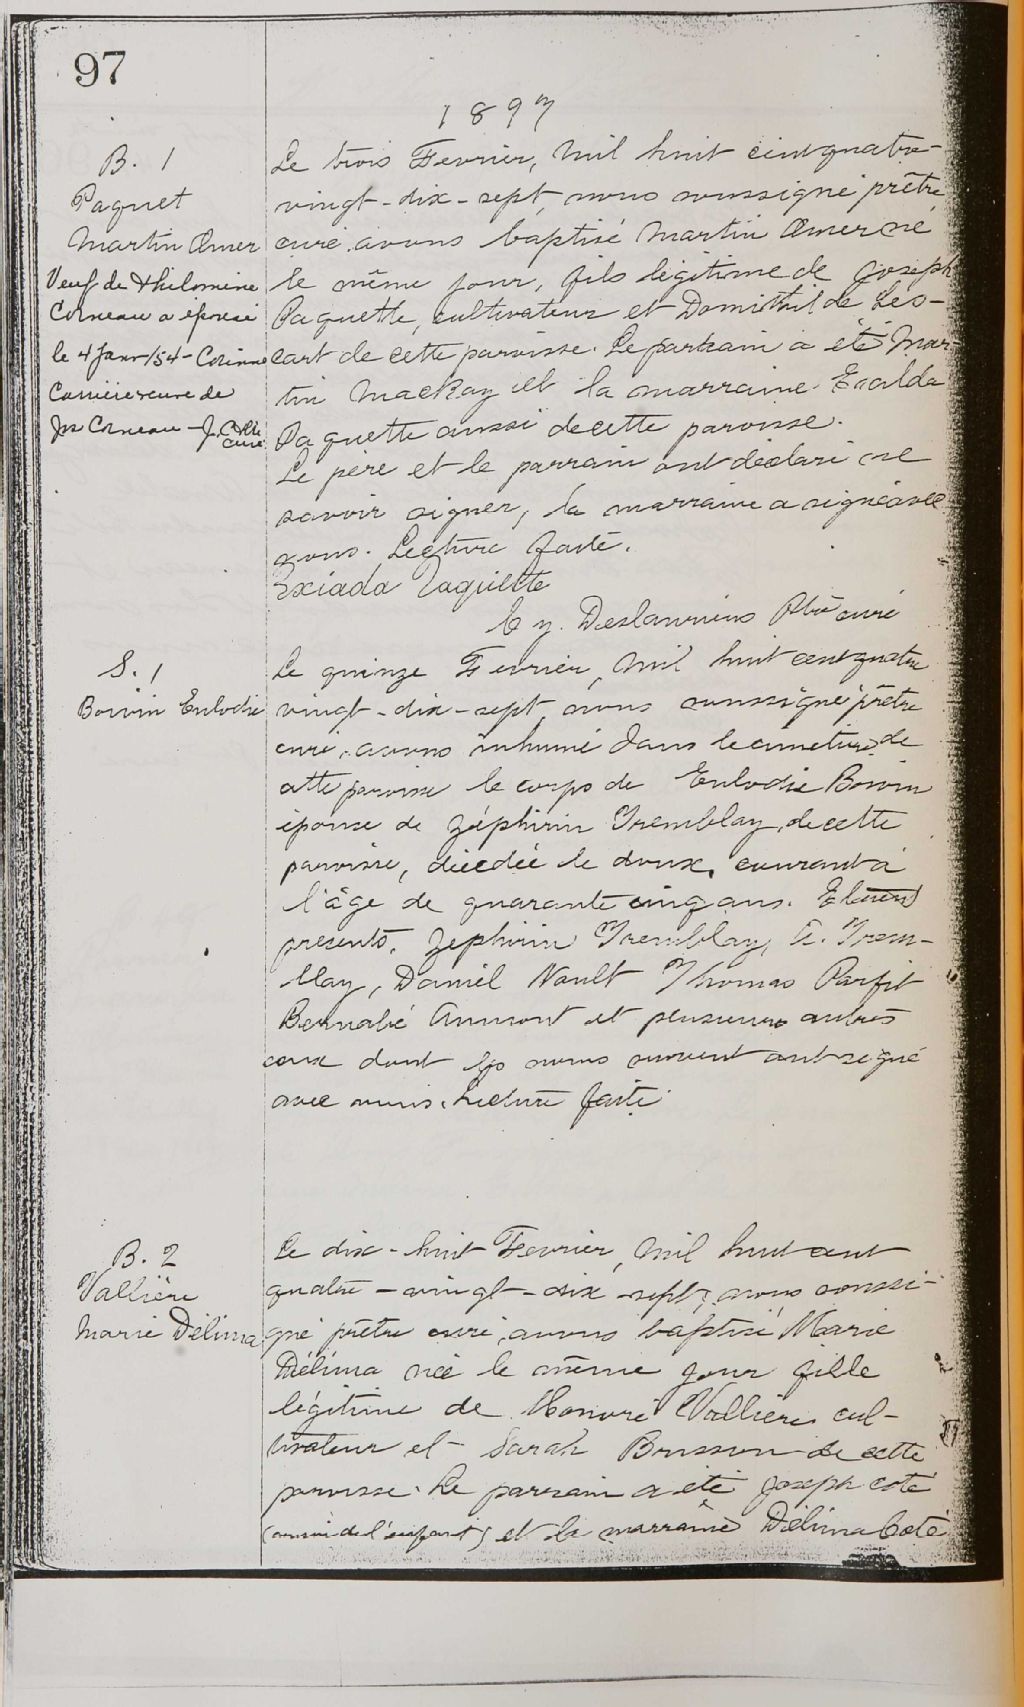 97
1897
B. 1
Paquet
Martin Omer
Veuf de Philomène
Corneau a épousé
le 4 Janv/54 - Corinne
Carrière veuve de
Jos Corneau - J. Côté
curé
Le trois Fevrier, mil huit cent quatre-
vingt-dix-sept, nous soussigné prêtre
curé avons baptisé Martin Omer né
le même jour, fils légitime de Joseph
Paquette, cultivateur et Domithilde Les-
cart de cette paroisse. Le parrain a été Mar-
tin Mackay et la marraine
Paquette aussi de cette paroisse.
Le père et le parrain ont déclaré ne
savoir signer, la marraine a signé avec
nous. Lecture faite.
Exiada Paquette
Deslauriers Ptre curé
S. 1
Boivin Eulodie
Le quinze Fevrier, mil huit cent quatre
vingt-dix-sept, nous soussigné prêtre
curé, avons inhumé dans le cimetière de
cette paroisse le corps de Eulodie Boivin
épouse de Zéphirin Tremblay, de cette
paroisse, décédée le douze, courant à
l'âge de quarante cinq ans. Etaient
presents, Zephirin Tremblay, A. Trem-
blay, Daniel Nault Thomas Parfit
Bernabé Aumont et plusieurs autres
ceux dont les noms suivent ont signé
avec nous. Lecture faite
B. 2
Vallière
Marie Délima
Le dix-huit Fevrier, mil huit cent
quatre-vingt-dix sept, nous soussi-
gné prêtre curé, avons baptisé Marie
Délima née le même jour fille
légitime de Honoré Vallière cul-
tivateur et Sarah Brisson de cette
paroisse. Le parrain a été Joseph coté
( de l'enfant) et la marraine Délima Coté